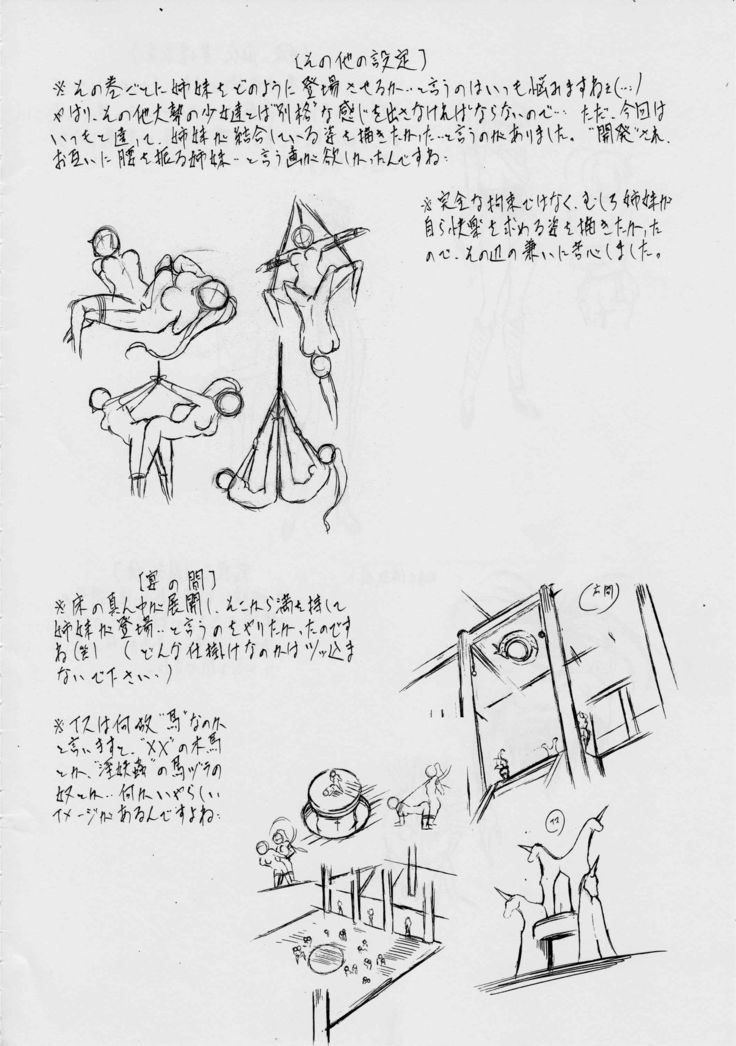 [その他の設定]
※その巻ごとに姉妹をどのように登場させるか…と言うのはいつも悩みますねぇ(…)
やはり、その他大勢の少女達とは"別格"な感じを出さなければならないので… ただ、今回は
いつもと違って、姉妹が結合している姿を描きたかった…と言うのがありました。"開発"され、
お互いに腰を振る姉妹…と言う画が欲しかったんですね…
※完全な拘束ではなく、むしろ姉妹が
自ら快楽を求める姿を描きたかった
ので、その辺の兼いに苦心しました。
[宴の間]
※床の真ん中が展開し、そこから満を持して
姉妹が登場…と言うのをやりたかったのです
ね(笑) (どんな仕掛けなのかはツッ込ま
ないで下さい…)
※イスは何故"馬"なのか
と言いますと、"××"の木馬
とか、"淫妖蟲"の馬ヅラの
奴とか…何かいやらしい
イメージがあるんですよね…
イス